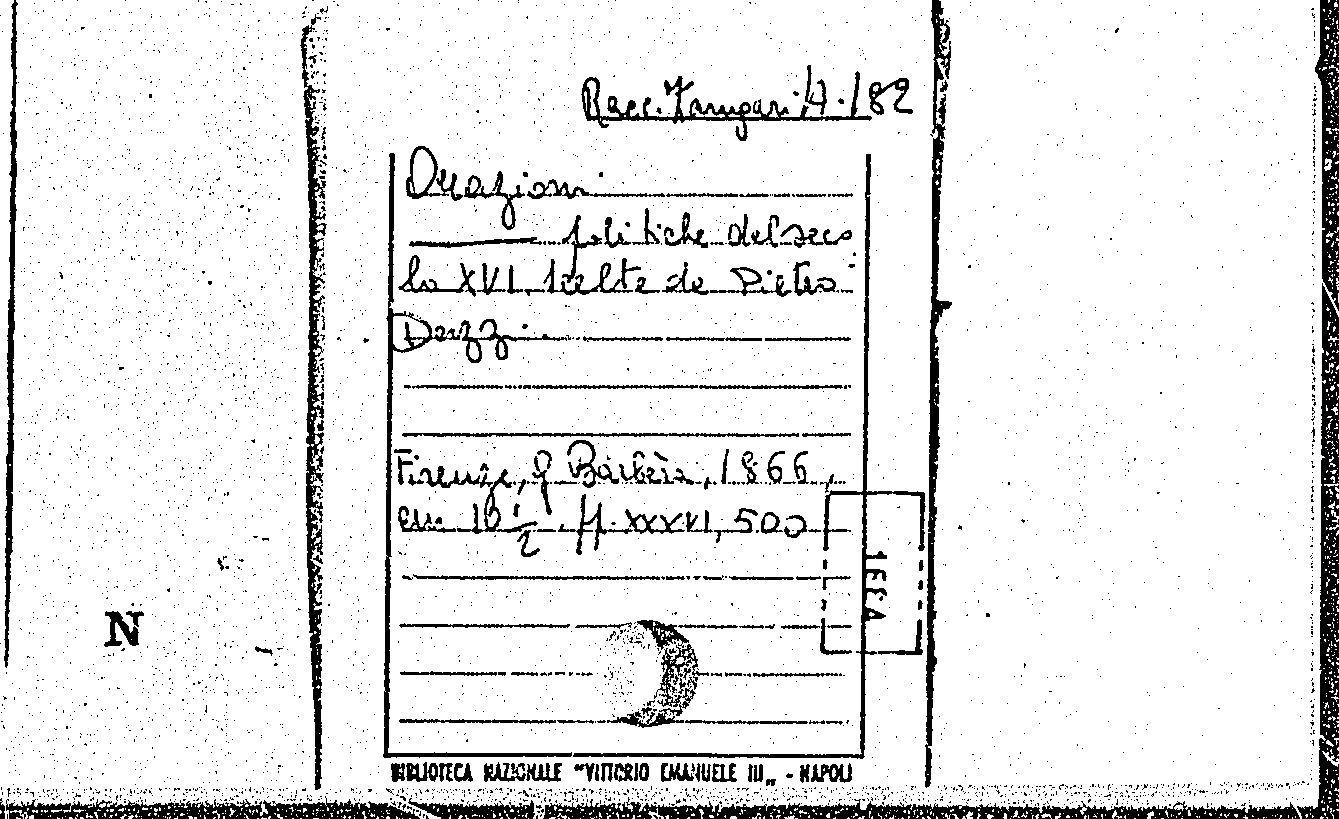 Racc. Zangari, A. 182
Orazioni
politiche del seco
lo XVI. scelte da Pietro
Dazzi.
Firenze, G. Barbèra, 1866,
cm. 16 1/2. pp. XXXVI, 500
N
BIBLIOTECA NAZIONALE "VITTORIO EMANUELE III„ - NAPOLI